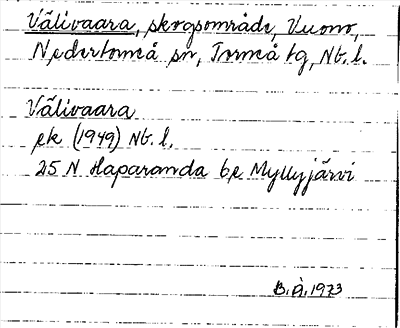 Välivaara, skogsområde, Vuono,
Nedertorneå sn, Torneå tg, Nb. l.
Välivaara
ek (1949) Nb. l.
25 N Haparanda 6e Myllyjärvi
B.Å. 1973